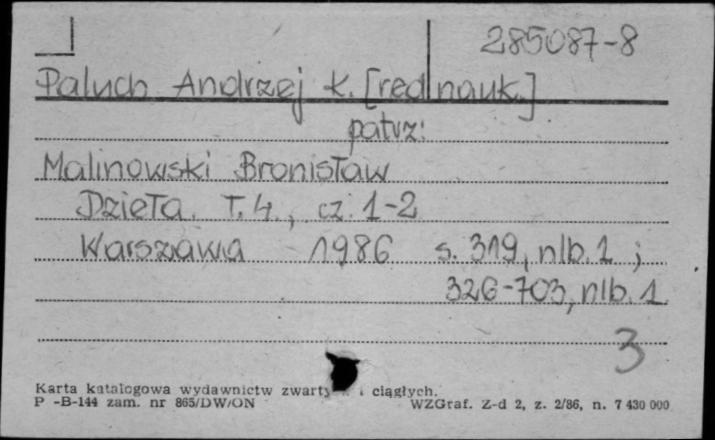 285087-8
Paluch Andrzej K. [red nauk.]
patrz:
Malinowski Bronisław
Dzieła. T. 4., cz. 1-2
Warszawa 1986 s. 319, nlb. 1 ;
326-703, nlb. 1.
3
Karta katalogowa wydawnictw zwarty i ciągłych.
P -B-144 zam. nr 865/DW/ON WZGraf. Z-d 2, z. 2/86, n. 7 430 000